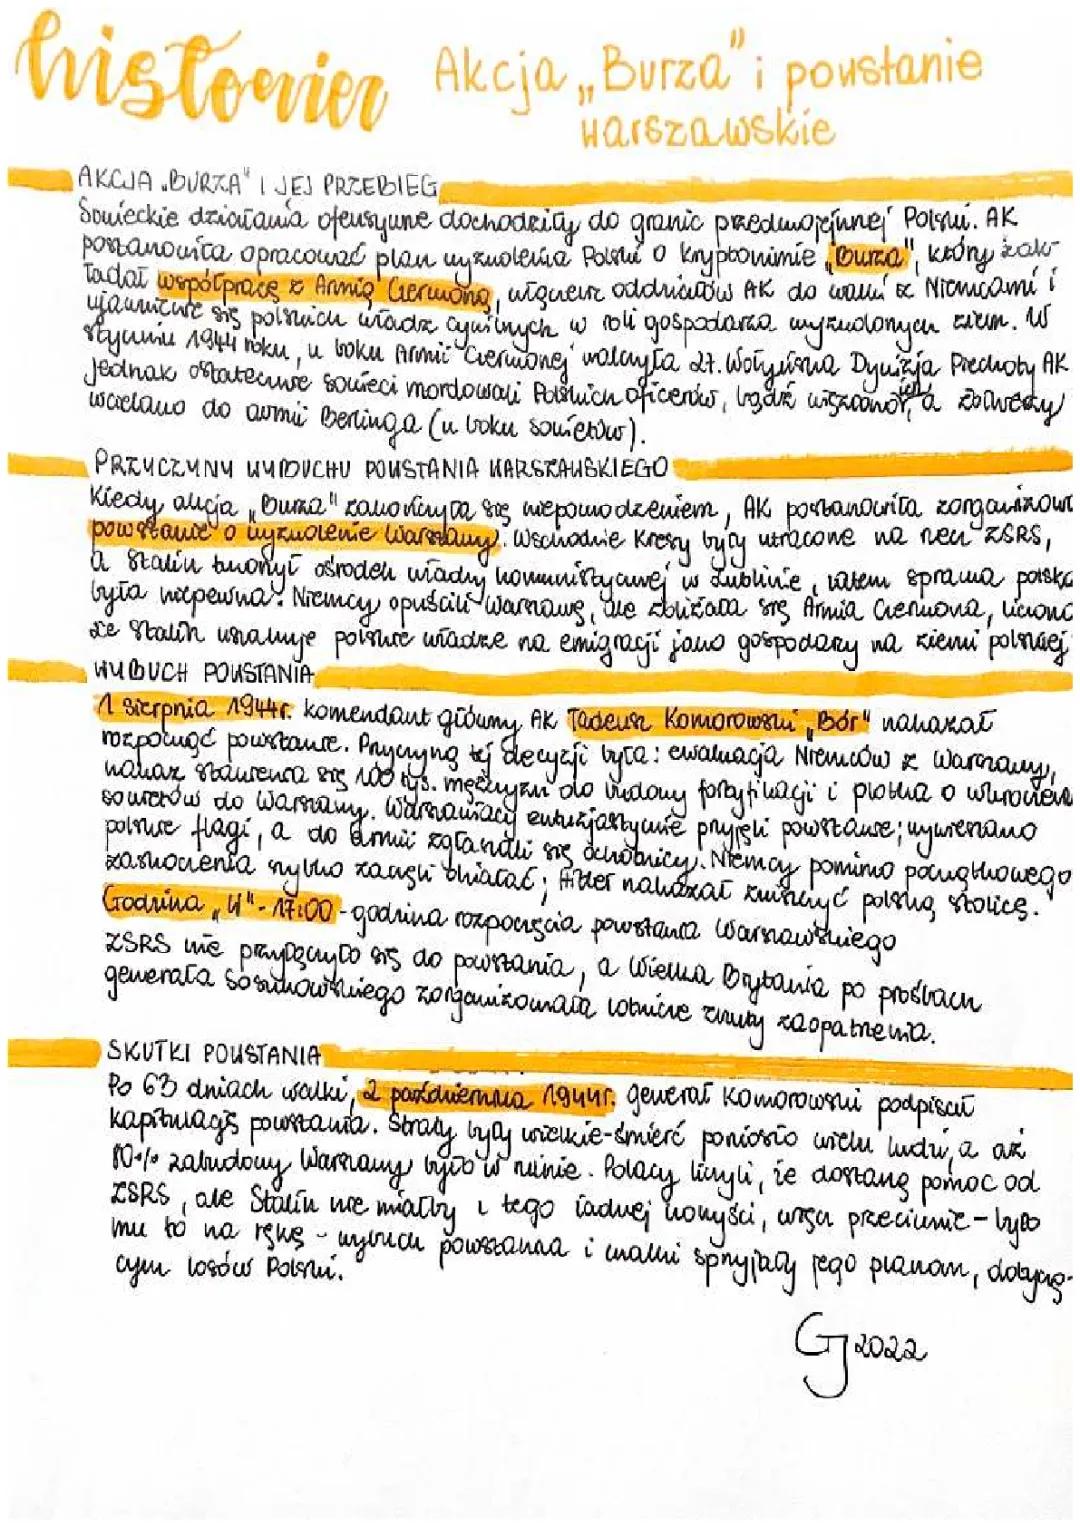 historia Akcja „Burza" i powstanie
warszawskie
AKCJA „BURZA" I JEJ PRZEBIEG
Sowieckie działania ofensywne dochodziły do granic przedwojennej Polski. AK
postanowiła opracować plan wyzwolenia Polski o kryptonimie „Burza", który zak-
ładał współpracę z Armią Czerwoną, włączenie oddziałów AK do walki z Niemcami i
ujawnienie się polskich władz cywilnych w roli gospodarza wyzwolonych ziem. W
styczniu 1944 roku, u boku Armii Czerwonej walczyła 27. Wołyńska Dywizja Piechoty AK
jednak ostatecznie sowieci mordowali Polskich oficerów, bądź więziono ich, a żołnierzy
wcielano do armii Berlinga (u boku sowietów).
PRZYCZYNY WYBUCHU POWSTANIA WARSZAWSKIEGO
Kiedy akcja „Burza" zakończyła się niepowodzeniem, AK postanowiła zorganizowa
powstanie o wyzwolenie Warszawy. Wschodnie Kresy były utracone na rzecz ZSRS,
a Stalin tworzył ośrodek władzy komunistycznej w Lublinie, zatem sprawa polska
była niepewna. Niemcy opuścili Warszawę, ale zbliżała się Armia Czerwona, liczono
że Stalin uszanuje polskie władze na emigracji jako gospodarzy na ziemi polskiej
WYBUCH POWSTANIA
1 sierpnia 1944r. komendant główny AK Tadeusz Komorowski „Bór" nakazał
rozpocząć powstanie. Przyczyną tej decyzji była: ewakuacja Niemców z Warszawy,
nakaz stawienia się 100 tys. mężczyzn do budowy fortyfikacji i plotka o wkroczeniu
sowietów do Warszawy. Warszawiacy entuzjastycznie przyjęli powstanie; wywieszano
polskie flagi, a do armii zgłaszali się ochotnicy. Niemcy pomimo początkowego
zaskoczenia szybko zaczęli działać; Hitler nakazał zniszczyć polską stolicę.
Godzina „W" - 17:00 - godzina rozpoczęcia powstania warszawskiego
ZSRS nie przyłączyło się do powstania, a Wielka Brytania po prośbach
generała Sosnkowskiego zorganizowała lotnicze zrzuty zaopatrzenia.
SKUTKI POWSTANIA
Po 63 dniach walki, 2 października 1944r. generał Komorowski podpisał
kapitulację powstania. Straty były wielkie - śmierć poniosło wielu ludzi, a aż
80% zabudowy Warszawy było w ruinie. Polacy liczyli, że dostaną pomoc od
ZSRS, ale Stalin nie miałby z tego żadnej korzyści, wręcz przeciwnie - było
mu to na rękę - wybuch powstania i walki sprzyjały jego planom, dotyczą-
cym losów Polski.
GJ 2022